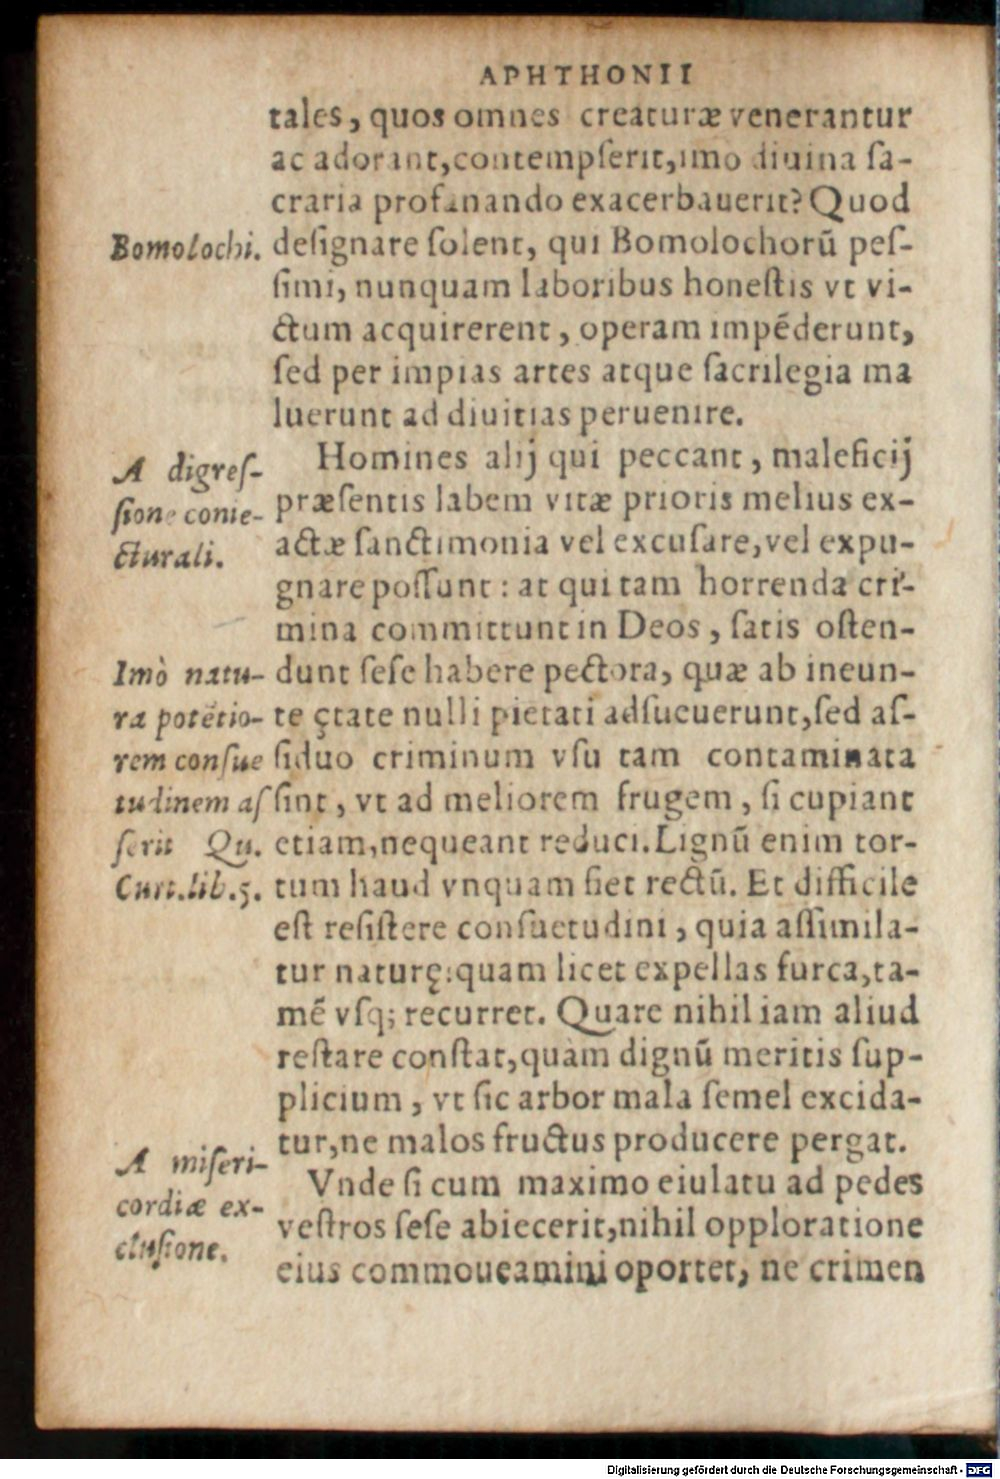 APHTHONII
tales, quos omnes creaturæ venerantur
ac adorant, contempſerit, imo diuina ſa-
craria profanando exacerbauerit? Quod
Bomolochi.
deſignare ſolent, qui Bomolochorū peſ-
ſimi, nunquam laboribus honeſtis vt vi-
ctum acquirerent, operam impēderunt,
ſed per impias artes atque ſacrilegia ma
luerunt ad diuitias peruenire.
A digreſ-
ſione conie-
cturali.
Homines alij qui peccant, maleficij
præſentis labem vitæ prioris melius ex-
actæ ſanctimonia vel excuſare, vel expu-
gnare poſſunt: at qui tam horrenda cri-
mina committunt in Deos, ſatis oſten-
Imò natu-
ra potētio-
rem conſue
tudinem aſ
ſerit Qu.
Curt. lib. 5.
dunt ſeſe habere pectora, quæ ab ineun-
te ętate nulli pietati adſueuerunt, ſed aſ-
ſiduo criminum vſu tam contaminata
ſint, vt ad meliorem frugem, ſi cupiant
etiam, nequeant reduci. Lignū enim tor-
tum haud vnquam fiet rectū. Et difficile
eſt reſiſtere conſuetudini, quia aſſimila-
tur naturę: quam licet expellas furca, ta-
mē vſq; recurret. Quare nihil iam aliud
reſtare conſtat, quàm dignū meritis ſup-
plicium, vt ſic arbor mala ſemel excida-
tur, ne malos fructus producere pergat.
A miſeri-
cordiæ ex-
cluſione.
Vnde ſi cum maximo eiulatu ad pedes
veſtros ſeſe abiecerit, nihil opploratione
eius commoueamini oportet, ne crimen
Digitalisierung gefördert durch die Deutsche Forschungsgemeinschaft - DFG